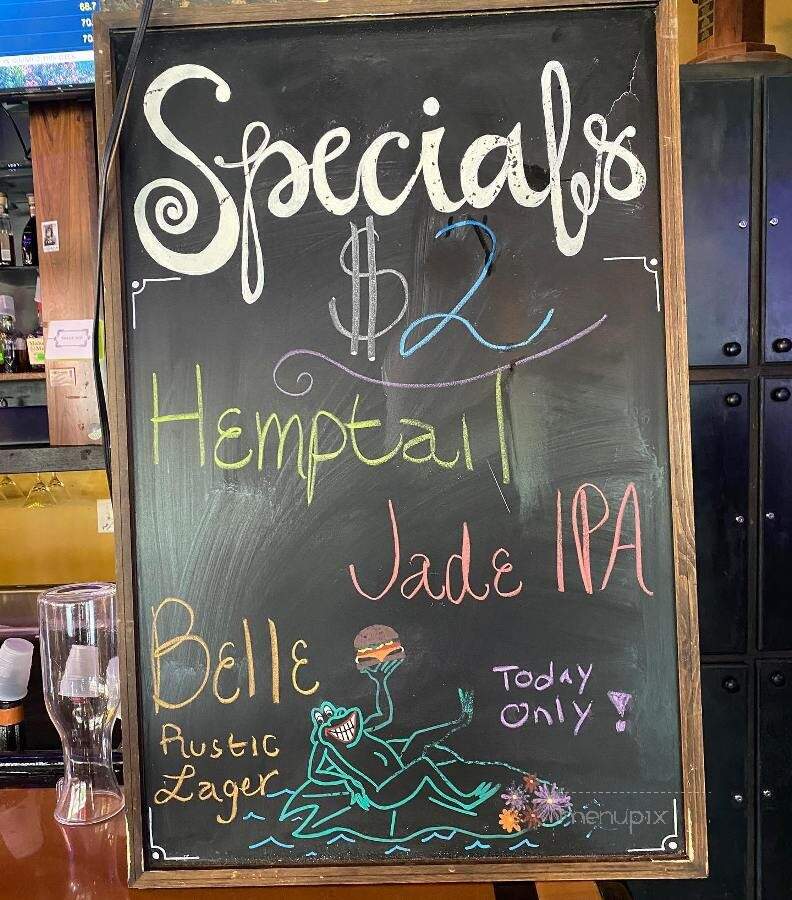 68.7
70.
70.
Specials
$2
Hemptail
Jade IPA
Belle
Rustic
Lager
Today
Only!
menupix